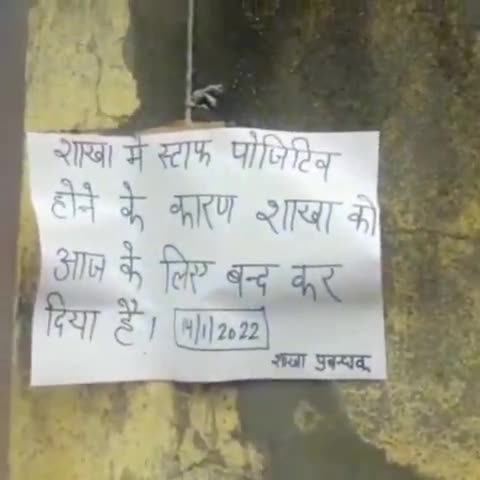 शाखा में स्टाफ पोजिटिव
होने के कारण शाखा को
आज के लिए बन्द कर
दिया है। 14/1/2022
शाखा प्रबन्धक